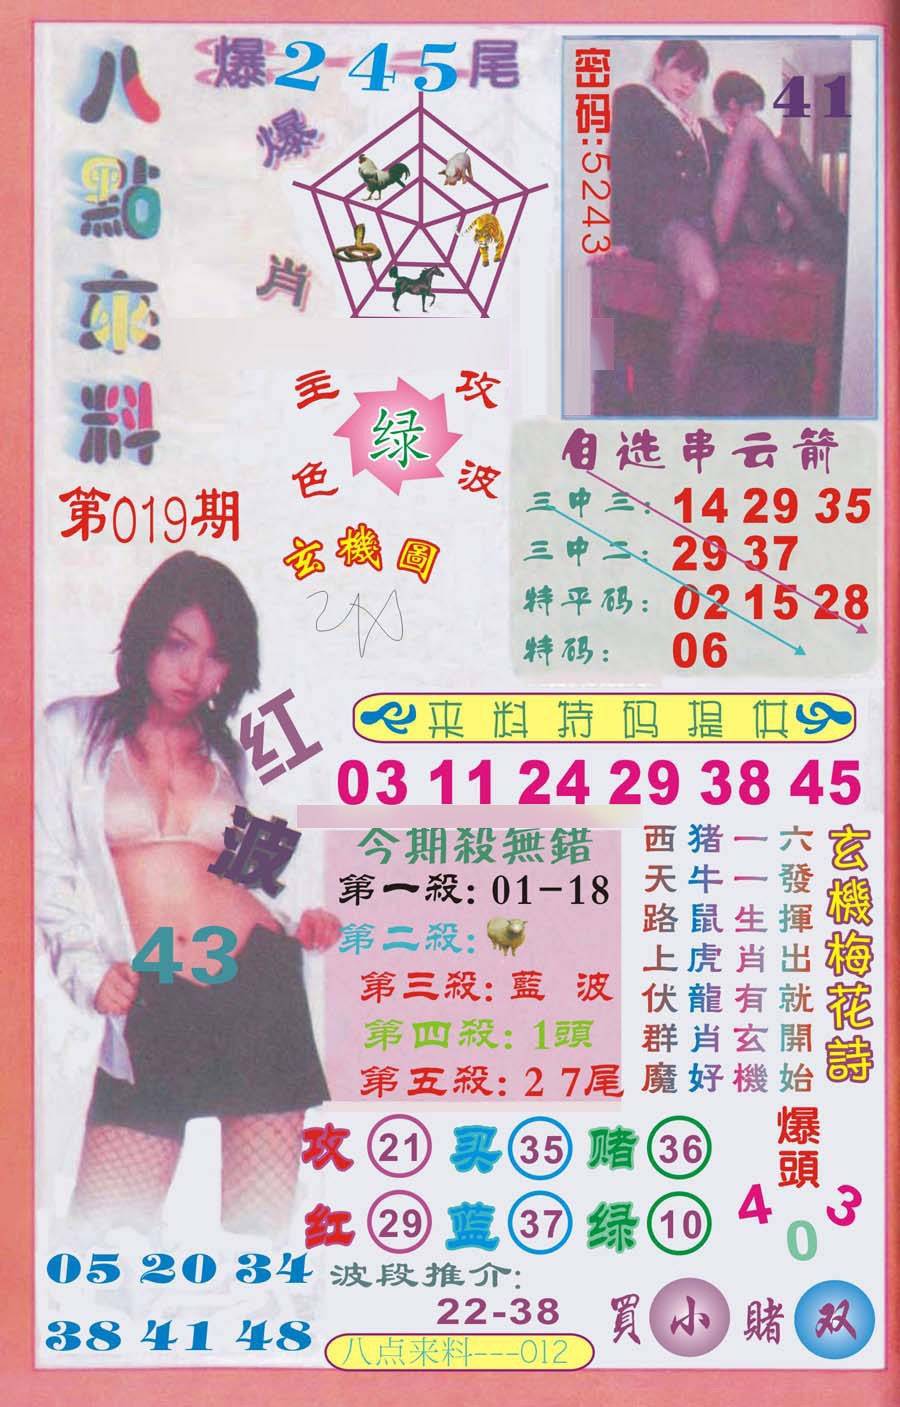 八點來料
爆245尾
爆肖
密码:5243
41
主色
绿
攻波
第019期
玄機圖
自选串云箭
三中三: 14 29 35
三中二: 29 37
特平码: 02 15 28
特码: 06
来料特码提供
03 11 24 29 38 45
红波
43
今期殺無錯
第一殺: 01-18
第二殺:
第三殺: 藍 波
第四殺: 1頭
第五殺: 2 7尾
玄機梅花詩
六發揮出就開始
一一生肖有玄機
猪牛鼠虎龍肖好
西天路上伏群魔
攻 21 买 35 赌 36
红 29 蓝 37 绿 10
爆頭
4 0 3
05 20 34
38 41 48
波段推介:
22-38
買 小 賭 双
八点来料---012